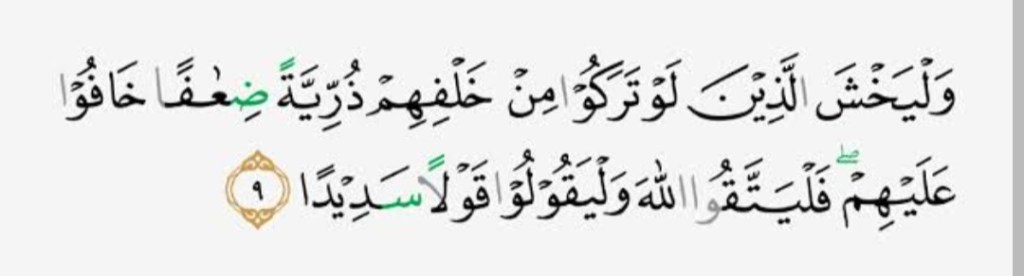 وَلْيَخْشَ الَّذِيْنَ لَوْ تَرَكُوْا مِنْ خَلْفِهِمْ ذُرِّيَّةً ضِعٰفًا خَافُوْا
عَلَيْهِمْۖ فَلْيَتَّقُوا اللّٰهَ وَلْيَقُوْلُوْا قَوْلًا سَدِيْدًا ٩